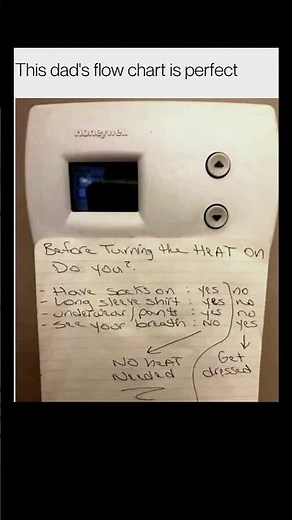 This dad's flow chart is perfect
Honeywell
Before Turning the HEAT ON
Do you?
- Have socks on : yes no
- Long sleeve shirt : yes no
- underwear/pants : yes no
- See your breath : No yes
NO HEAT Needed
Get dressed